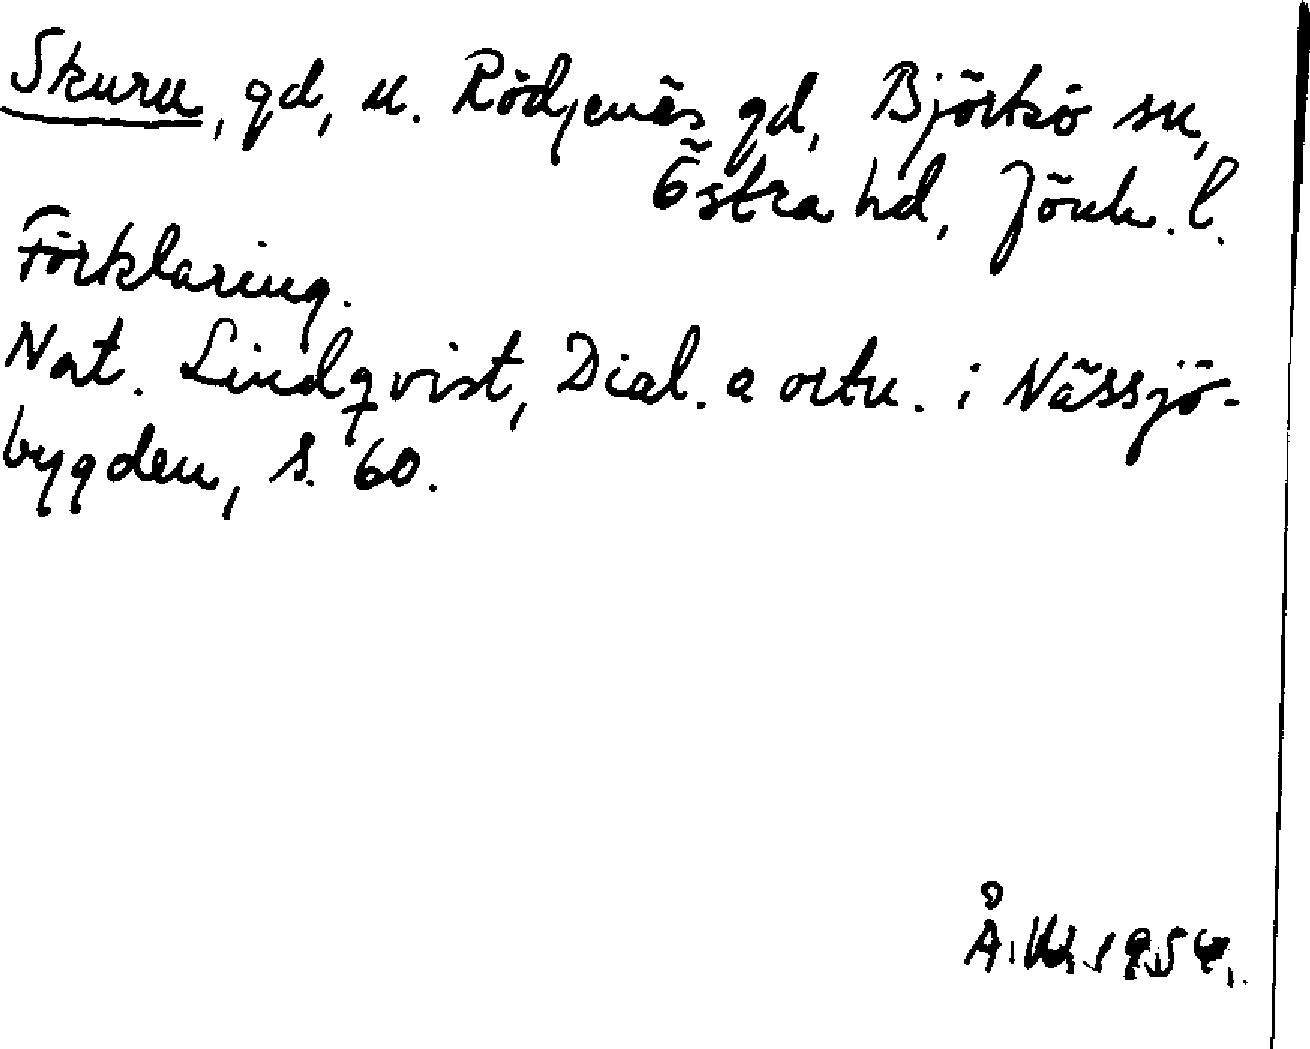 Skuru, gd, u. Rödjenäs gd, Björkö sn,
Östra hd, Jönk. l.
Förklaring.
Nat. Lindqvist, Dial. o ortn. i Nässjö-
bygden, s. 60.
1954.